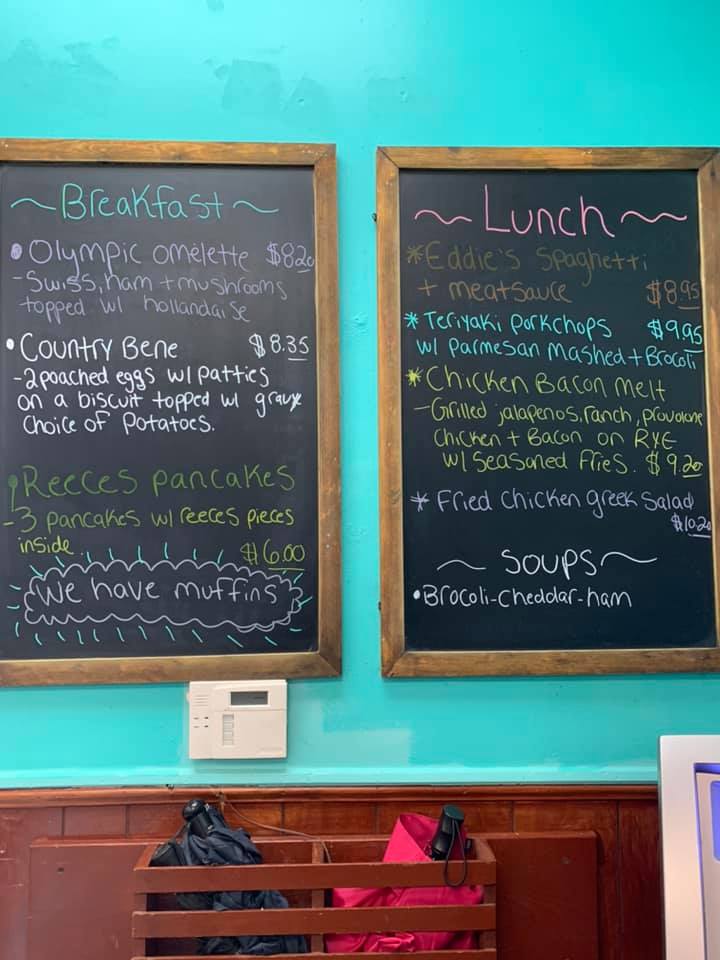 ~Breakfast~
• Olympic omelette $8.20
- Swiss, ham + mushrooms
topped w/ hollandaise
• Country Bene $8.35
- 2 poached eggs w/ patties
on a biscuit topped w/ gravy
choice of Potatoes.
Reeces pancakes
- 3 pancakes w/ reeces pieces
inside. $6.00
We have muffins
~Lunch~
* Eddie's Spaghetti
+ meatsauce $8.95
* Teriyaki porkchops $9.95
w/ Parmesan Mashed + Brocoli
* Chicken Bacon Melt
- Grilled jalapenos, ranch, provolone
Chicken + Bacon on RYE
w/ Seasoned Fries. $9.20
* Fried Chicken greek Salad
$10.20
~Soups~
• Brocoli-cheddar-ham